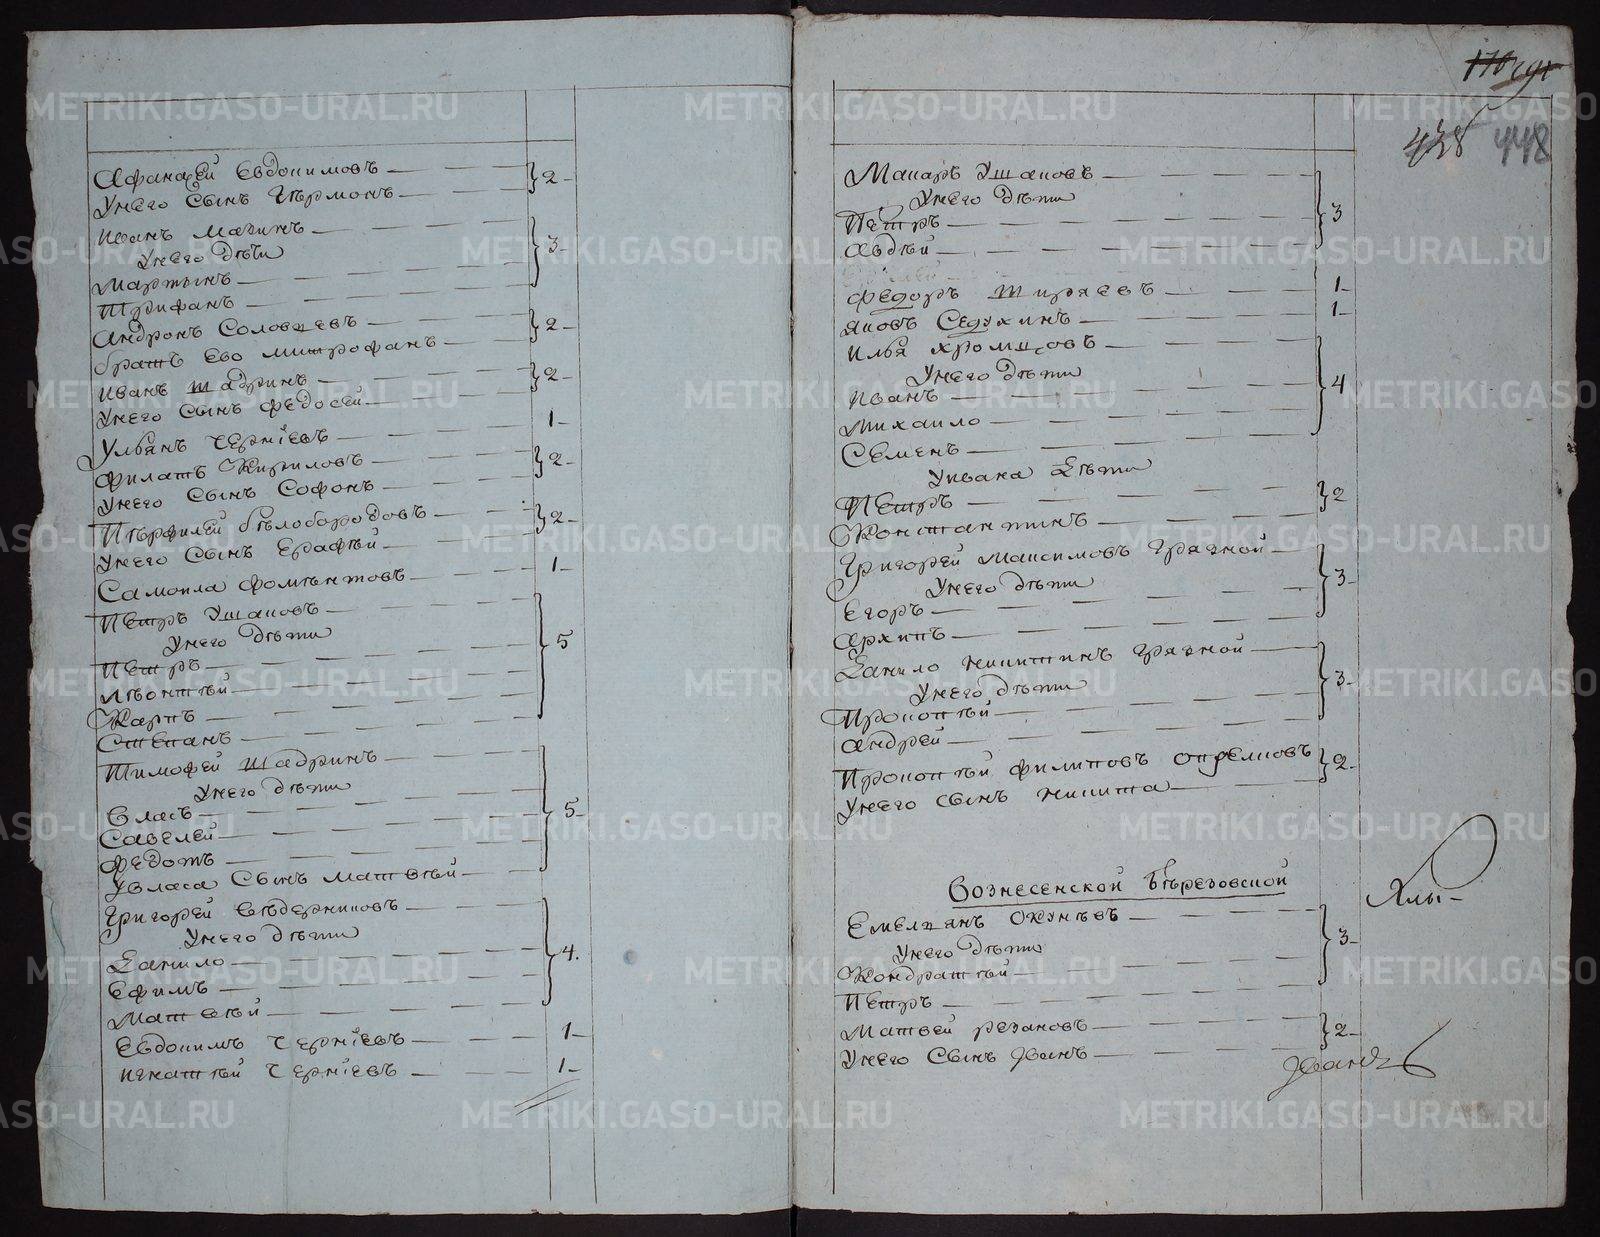 Афанасей Евдокимовъ 2
Унего Сынъ Гѣрмонъ
Иванъ Мачинъ
Унего Дѣти 3
Мартынъ
Трифанъ
Андронъ Соловьевъ 2
братъ Ево митрофанъ
Иванъ шадринъ 2
Унего Сынъ Федосей
Ульянъ Черніевъ 1
Филатъ Кириловъ 2
Унего Сынъ Софонъ
Пѣрфилей бѣлобородовъ 2
Унего Сынъ Ерафѣй
Самоила фомѣнтовъ 1
Петръ Ушаковъ
Унего Дѣти 5
Петръ
Лѣонтѣй
Карпъ
Степанъ
Тимофей шадринъ
Унего Дѣти
Власъ 5
Савелей
Федотъ
Увласа Сынъ Матвѣй
Григорей Вѣдерниковъ
Унего Дѣти
Данило 4.
Ефимъ
Матвѣй
Евдокимъ Черніевъ 1
Игнатѣй Черніевъ 1
428 448
Макаръ Ушаковъ
Унего Дѣти 3
Петръ
Авдѣй
Федоръ Ширяевъ 1
Яковъ Седухинъ 1
Илья хромцовъ
Унего Дѣти 4
Иванъ
Михаило
Семенъ
Уивана Дѣти
Петръ 2
Константинъ
Григорей Максимовъ Грачной
Унего Дѣти 3
Егоръ
Архипъ
Данило Никитинъ Грачной
Унего Дѣти 3
Прокопѣй
Андрей
Прокопѣй Филиповъ Опрелковъ 2
Унего Сынъ Никита
Вознесенской Бѣрезовской
Емельянъ Окунѣвъ
Унего Дѣти 3
Кондратѣй
Петръ
Матвей резановъ 2
Унего Сынъ Иванъ
Иванъ
METRIKI.GASO-URAL.RU